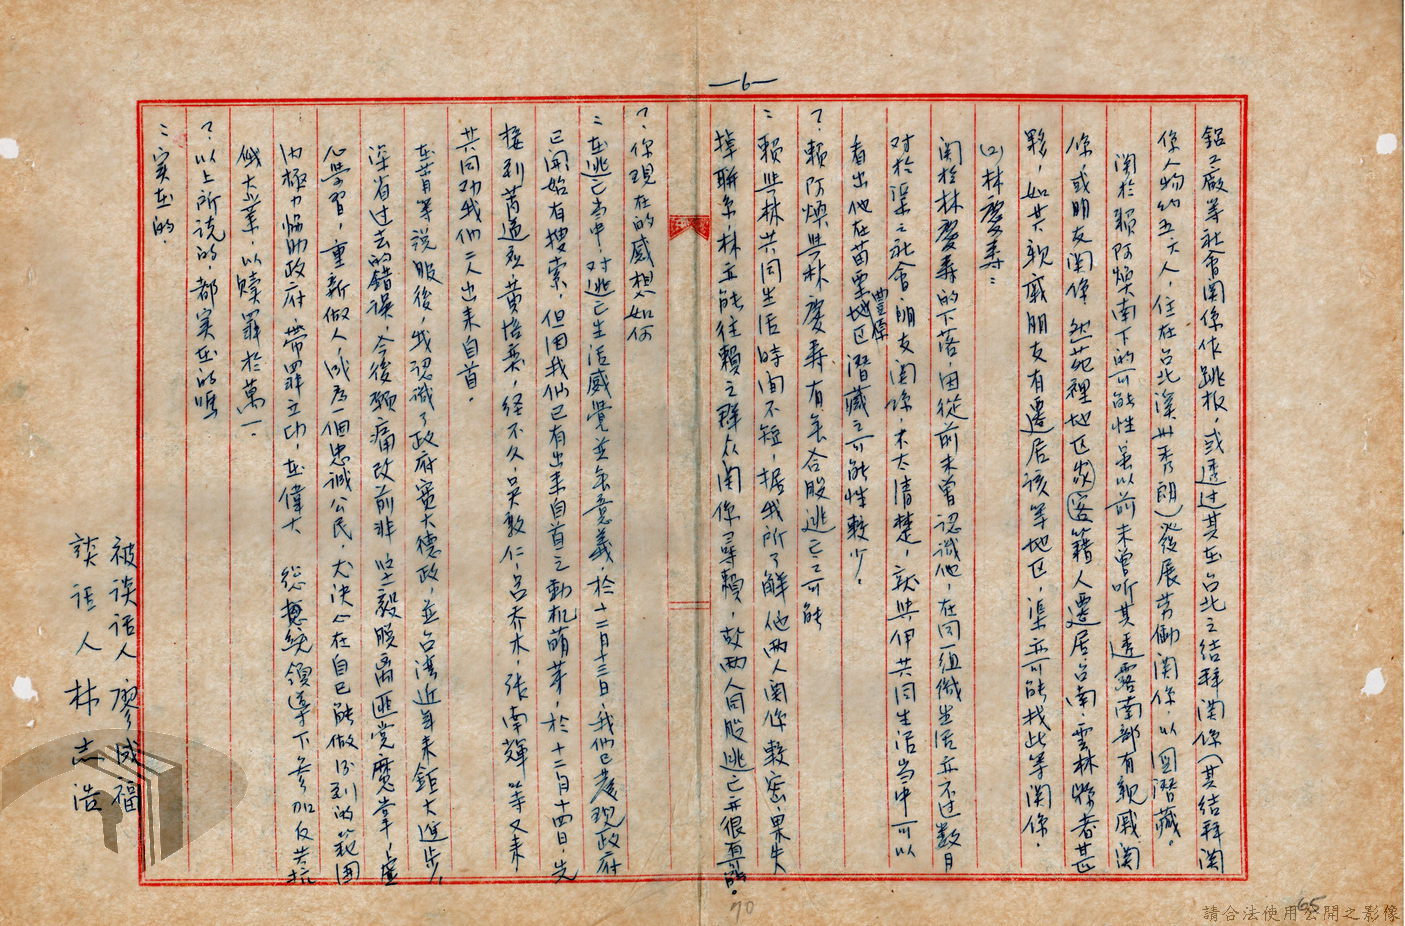 —6—
鋁工廠等社會関係作跳板，或透过其在台北之结拜関係（其结拜関
係人物約五六人，住在台北溪州秀朗）發展劳働関係，以圖潛藏。
関於賴阿煥南下的可能性虽以前未曾听其透露南部有親戚関
係或朋友関係，然苑裡地区客籍人遷居台南、雲林縣者甚
夥，如其親戚朋友有遷居該等地区，渠亦可能找此等関係。
(2)林慶寿：
関於林慶寿的下落，因從前未曾認識他，在同一組織生活亦不过数月
对於渠之社會朋友関係，不太清楚，就與伊共同生活当中可以
看出他在苗栗地区豐原潛藏之可能性較少。
？：賴阿煥與林慶寿有無合股逃亡之可能
：賴與林共同生活時间不短，据我所了解他两人関係較密，果失
掉聯系，林亦能往賴之群众関係尋賴，故两人同股逃亡亦很可能。
？：你現在的感想如何
：在逃亡当中，对逃亡生活感覺並無意義，於十二月十三日，我們已發現政府
已開始有搜索，但因我们已有出来自首之動机萌芽，於十二月十四日，先
接到黄培奕，经不久，吳敦仁、呂乔木、張南輝等又来
共同劝我们二人出来自首。
在 等說服後，我認識了政府寬大德政，並台湾近年来鉅大進步，
深省过去的錯誤，今後願痛改前非，以 毅脱离匪党魔掌，虛
心學習，重新做人，成为一個忠誠公民，尤決心在自己能做得到的範围
内極力協助政府，带罪立功，在偉大 總統領導下参加反共抗
俄大業，以贖罪於萬一。
？：以上所說的，都实在的嗎
：实在的。
被談话人 廖成福
談话人 林志浩
70
65
請合法使用公開之影像